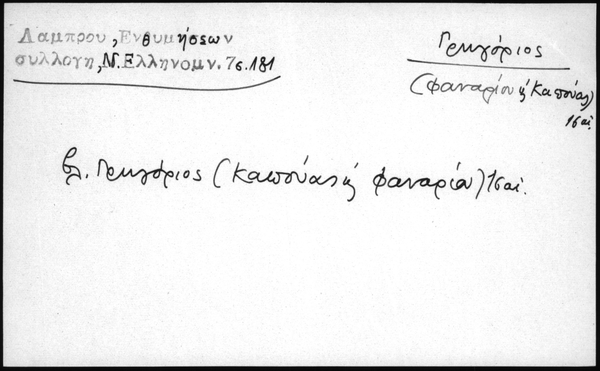 Λαμπρου, Ενθυμήσεων
συλλογη, Ν. Ελληνομν. 7ς. 181
Γρηγόριος
(Φαναρίου ἤ Καπούας)
16 αἰ.
βλ. Γρηγόριος (Καπούας ἤ Φαναρίου) 16 αἰ.